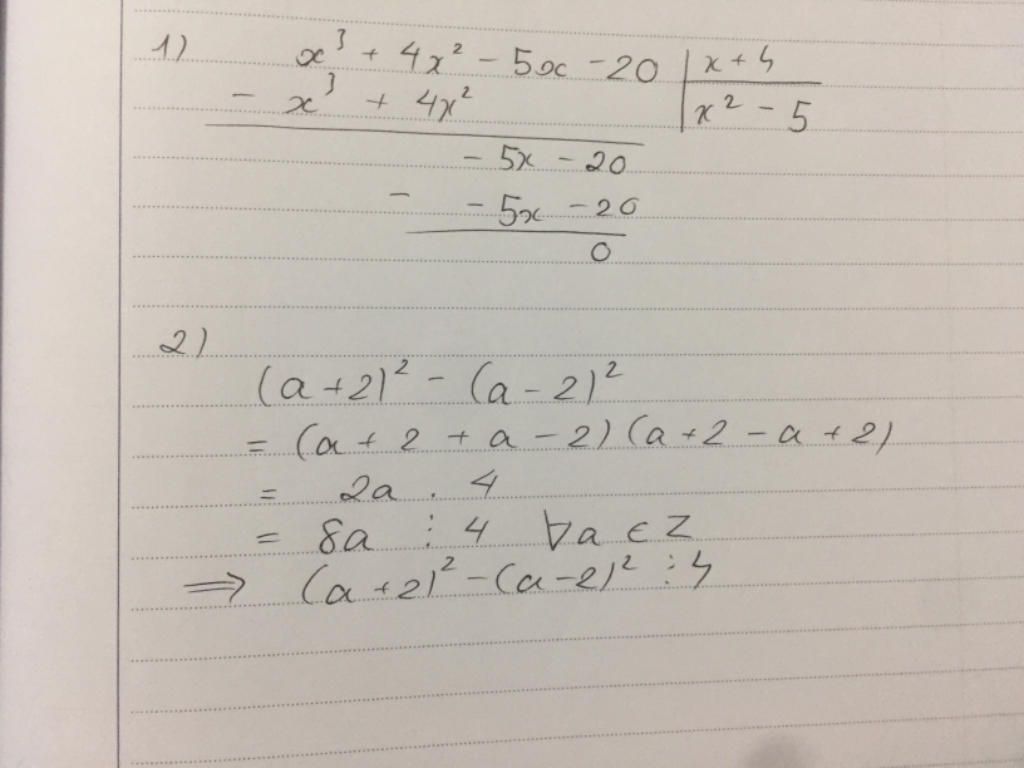 1) x³ + 4x² - 5x - 20 | x + 4
- x³ + 4x² | x² - 5
- 5x - 20
- - 5x - 20
0
2)
(a + 2)² - (a - 2)²
= (a + 2 + a - 2) (a + 2 - a + 2)
= 2a . 4
= 8a ⋮ 4 ∀a ∈ Z
⟹ (a + 2)² - (a - 2)² ⋮ 4